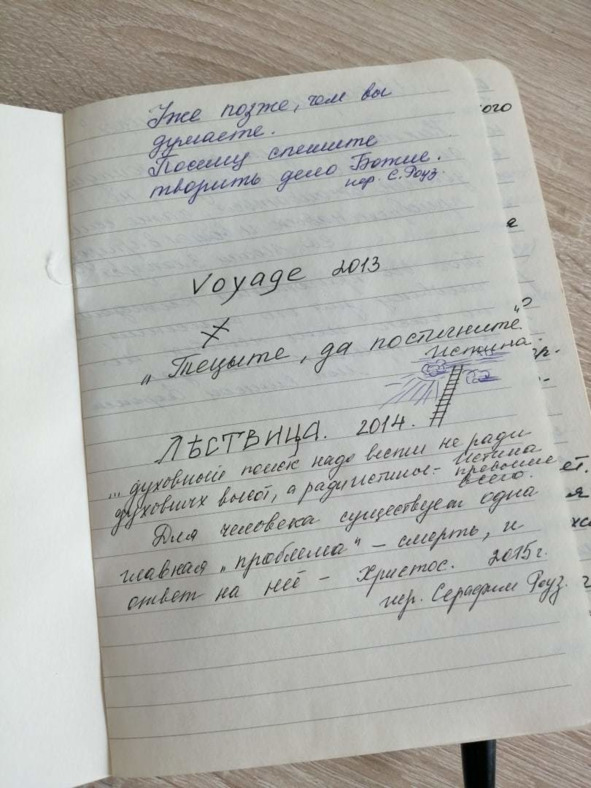 Уже позже, чем вы
думаете.
Посему спешите
творить дело Божие.
иер. С. Роуз.
Voyage 2013
„Тецыте, да постигните“
Истина.
ЛѢСТВИЦА. 2014.
... духовный поиск надо вести не ради
духовных высот, а ради истины – Истина
превыше
всего.
Для человека существует одна
главная „проблема“ – смерть, и
ответ на неё – Христос. 2015г.
иер. Серафим Роуз.
ого
е